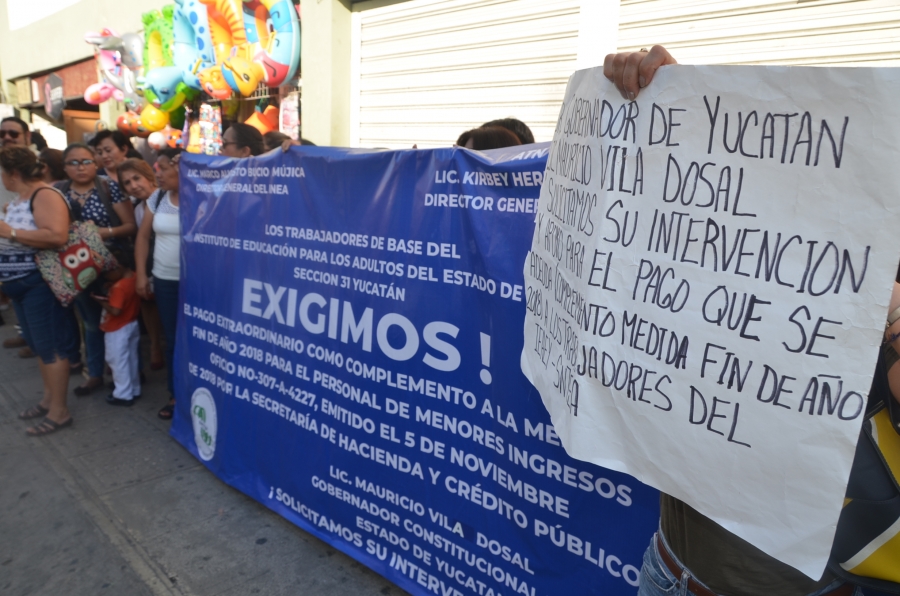 LIC. MARCO ALBERTO BOCIO MÚJICA
DIRECTOR GENERAL DEL INEA
LIC. KIRBEY HER
DIRECTOR GENER
LOS TRABAJADORES DE BASE DEL
INSTITUTO DE EDUCACIÓN PARA LOS ADULTOS DEL ESTADO DE
SECCION 31 YUCATÁN
EXIGIMOS !
EL PAGO EXTRAORDINARIO COMO COMPLEMENTO A LA ME
FIN DE AÑO 2018 PARA EL PERSONAL DE MENORES INGRESOS
OFICIO NO-307-A-4227, EMITIDO EL 5 DE NOVIEMBRE
DE 2018 POR LA SECRETARÍA DE HACIENDA Y CRÉDITO PÚBLICO
LIC. MAURICIO VILA DOSAL
GOBERNADOR CONSTITUCIONAL
ESTADO DE YUCATAN
¡ SOLICITAMOS SU INTERVE
GOBERNADOR DE YUCATAN
MAURICIO VILA DOSAL
SOLICITAMOS SU INTERVENCION
PARA EL PAGO QUE SE
MEDIDA FIN DE AÑO
2018, A LOS TRABAJADORES DEL